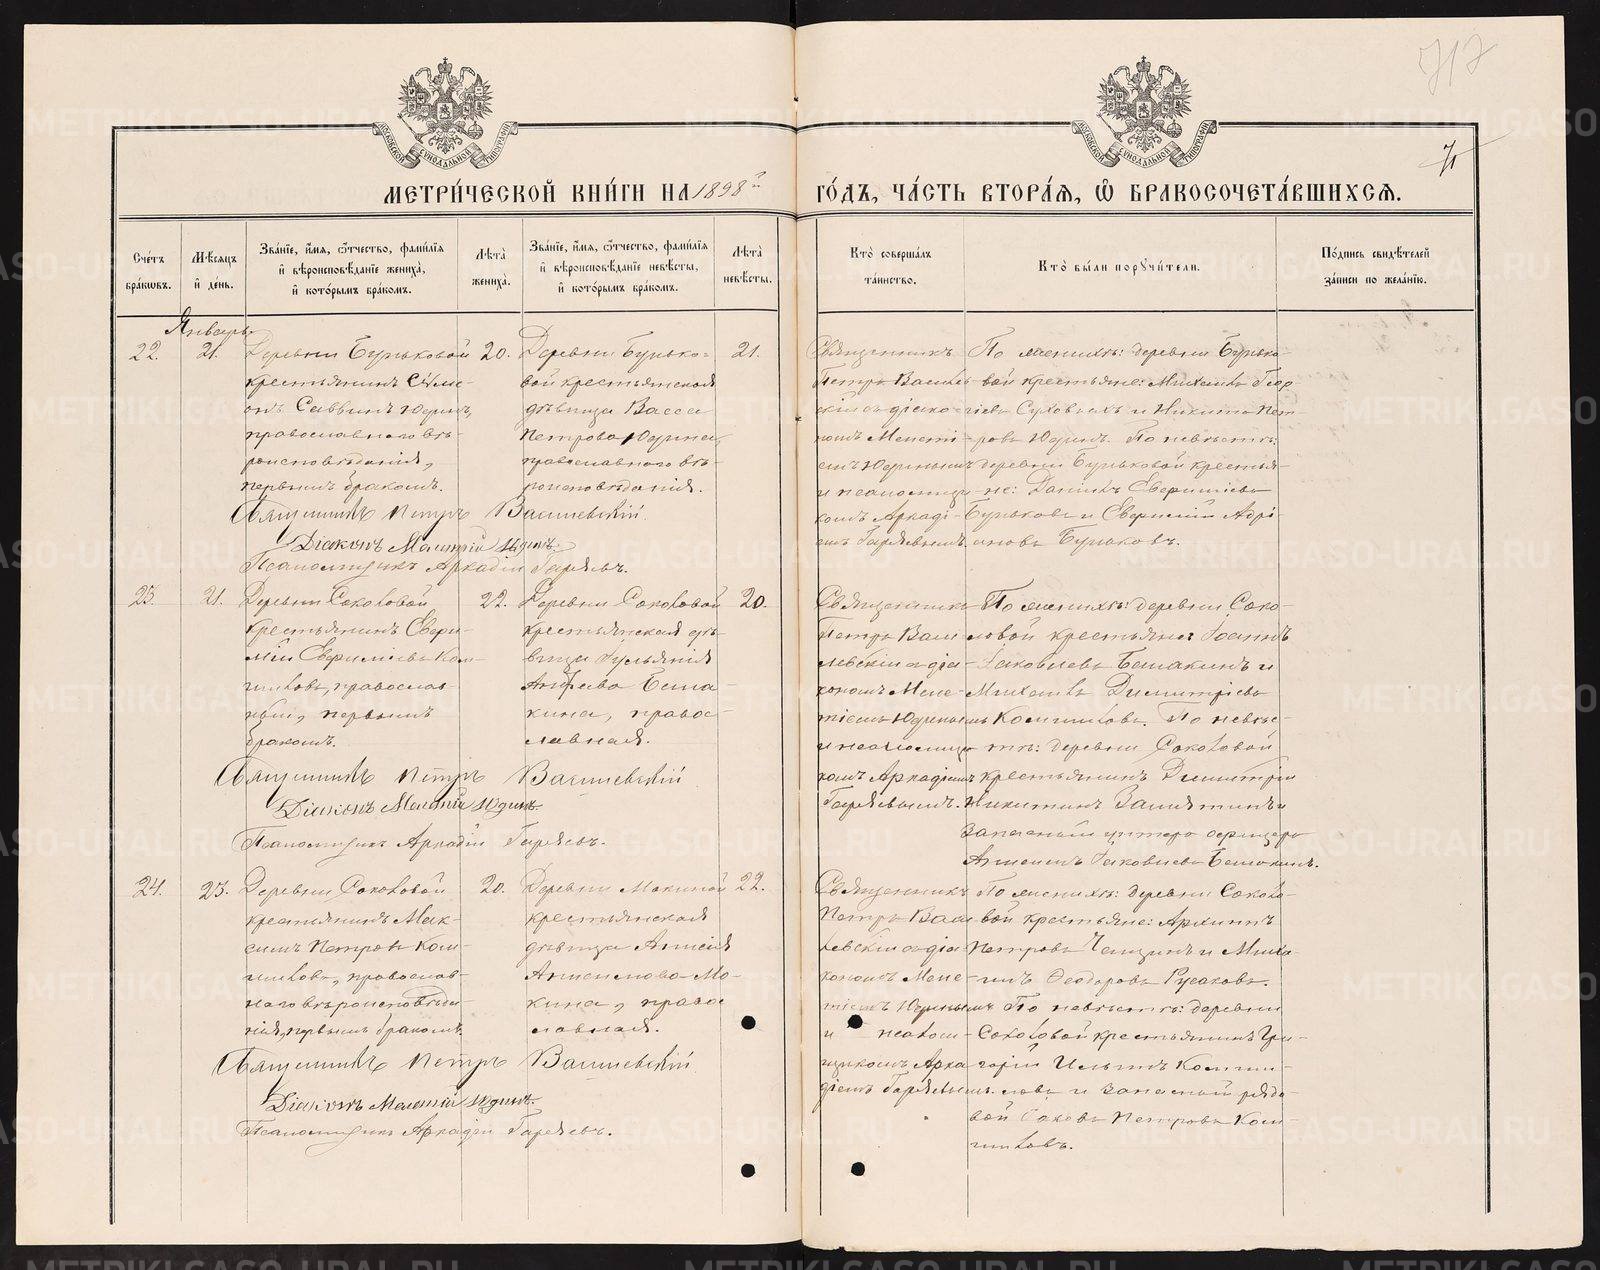 717
71
МОСКОВСКОЙ СѴНОДАЛЬНОЙ ТИПОГРАФІИ
МОСКОВСКОЙ СѴНОДАЛЬНОЙ ТИПОГРАФІИ
МЕТРИ́ЧЕСКОЙ КНИ́ГИ НА 1898й ГО́ДЪ, ЧА́СТЬ ВТОРА́Я, Ѽ БРАКОСОЧЕТА́ВШИХСЯ.
Сче́тъ бра́кѡвъ.
Мѣ́сяцъ и҆ де́нь.
Зва́нїе, и҆́мя, ѻ҆́тчество, фами́лїя
и҆ вѣроисповѣ́данїе жениха̀,
и҆ кото́рымъ бра́комъ.
Лѣта̀ жениха̀.
Зва́нїе, и҆́мя, ѻ҆́тчество, фами́лїя
и҆ вѣроисповѣ́данїе невѣ́сты,
и҆ кото́рымъ бра́комъ.
Лѣта̀ невѣ́сты.
Кто̀ соверша́лъ та́инство.
Кто̀ бы́ли порꙋчи́тели.
По́дпись свидѣ́телей за́писи по жела́нїю.
Январь
22.
21.
Деревни Буньковой
крестьянинъ Симе-
онъ Саввинъ Юдинъ,
православнаго вѣ-
роисповѣданія,
первымъ бракомъ.
20.
Деревни Бунько-
вой крестьянская
дѣвица Васса
Петрова Юдина,
православнаго вѣ-
роисповѣданія.
21.
Священникъ
Петръ Василев-
скій съ діако-
номъ Мелеті-
емъ Юдинымъ
и псаломщи-
комъ Аркаді-
емъ Гаряевымъ.
По женихѣ: деревни Бунько-
вой крестьяне: Михаилъ Геор-
гіевъ Суховъ и Никита Пет-
ровъ Юдинъ. По невѣстѣ:
деревни Буньковой крестья-
не: Даніилъ
Буньковъ и Адрі-
ановъ Буньковъ.
Священникъ Петръ Василевскій
Діаконъ Мелетій Юдинъ.
Псаломщикъ Аркадій Гаряевъ.
23.
21.
Деревни Соколовой
крестьянинъ
православ-
ный, первымъ
бракомъ.
22.
Деревни Соколовой
крестьянская дѣ-
вица Іуліанія
Андреева Баша-
кина, правос-
лавная.
20.
Священникъ
Петръ Васи-
левскій съ діа-
кономъ Меле-
тіемъ Юдинымъ
и псаломщи-
комъ Аркадіемъ
Гаряевымъ.
По женихѣ: деревни Соко-
ловой крестьяне: Іоаннъ
Іаковлевъ Башакинъ и
Михаилъ Димитріевъ
По невѣс-
тѣ: деревни Соколовой
крестьянинъ Димитрій
Никитинъ
запасный унтеръ офицеръ
Іаковлевъ Башакинъ.
Священникъ Петръ Василевскій
Діаконъ Мелетій Юдинъ.
Псаломщикъ Аркадій Гаряевъ.
24.
23.
Деревни Соколовой
крестьянинъ Мак-
симъ Петровъ
православ-
наго вѣроисповѣда-
нія, первымъ бракомъ.
20.
Деревни Мокиной
крестьянская
дѣвица Анисія
Анисимова Мо-
кина, право-
славная.
22.
Священникъ
Петръ Васи-
левскій съ діа-
кономъ Меле-
тіемъ Юдинымъ
и псалом-
щикомъ Арка-
діемъ Гаряевымъ.
По женихѣ: деревни Соколо-
вой крестьяне: Архиппъ
Петровъ и Миха-
илъ Ѳеодоровъ Русаковъ.
По невѣстѣ: деревни
Соколовой крестьянинъ Гри-
горій Ильинъ
и запасный рядо-
вой Іаковъ Петровъ
Священникъ Петръ Василевскій
Діаконъ Мелетій Юдинъ.
Псаломщикъ Аркадій Гаряевъ.
METRIKI.GASO-URAL.RU